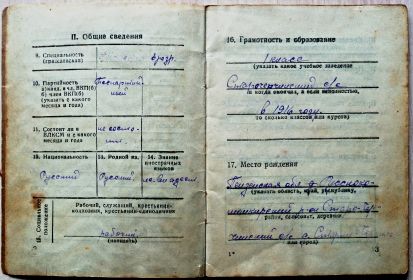 II. Общие сведения
9. Специальность
(гражданская)
10. Партийность
а) канд. в чл. ВКП(б)
б) член ВКП(б)
(указать с какого
месяца и года)
Беспартий-
ный
11. Состоит ли в
ВЛКСМ и с какого
месяца и года
не состо-
12. Национальность
13. Родной яз.
14. Знание
иностранных
языков
Русский
Русский
не владеет
15. Социальное
положение
Рабочий, служащий, крестьянин-
колхозник, крестьянин-единоличник
рабочий
(написать)
16. Грамотность и образование
1 класс
(указать какое учебное заведение
и когда окончил, а если неполностью,
в 1916 году
то сколько классов или курсов)
17. Место рождения
Пензенская обл
(указать область, край, республику,
район, сельсовет, деревня,
или город)
1*
3